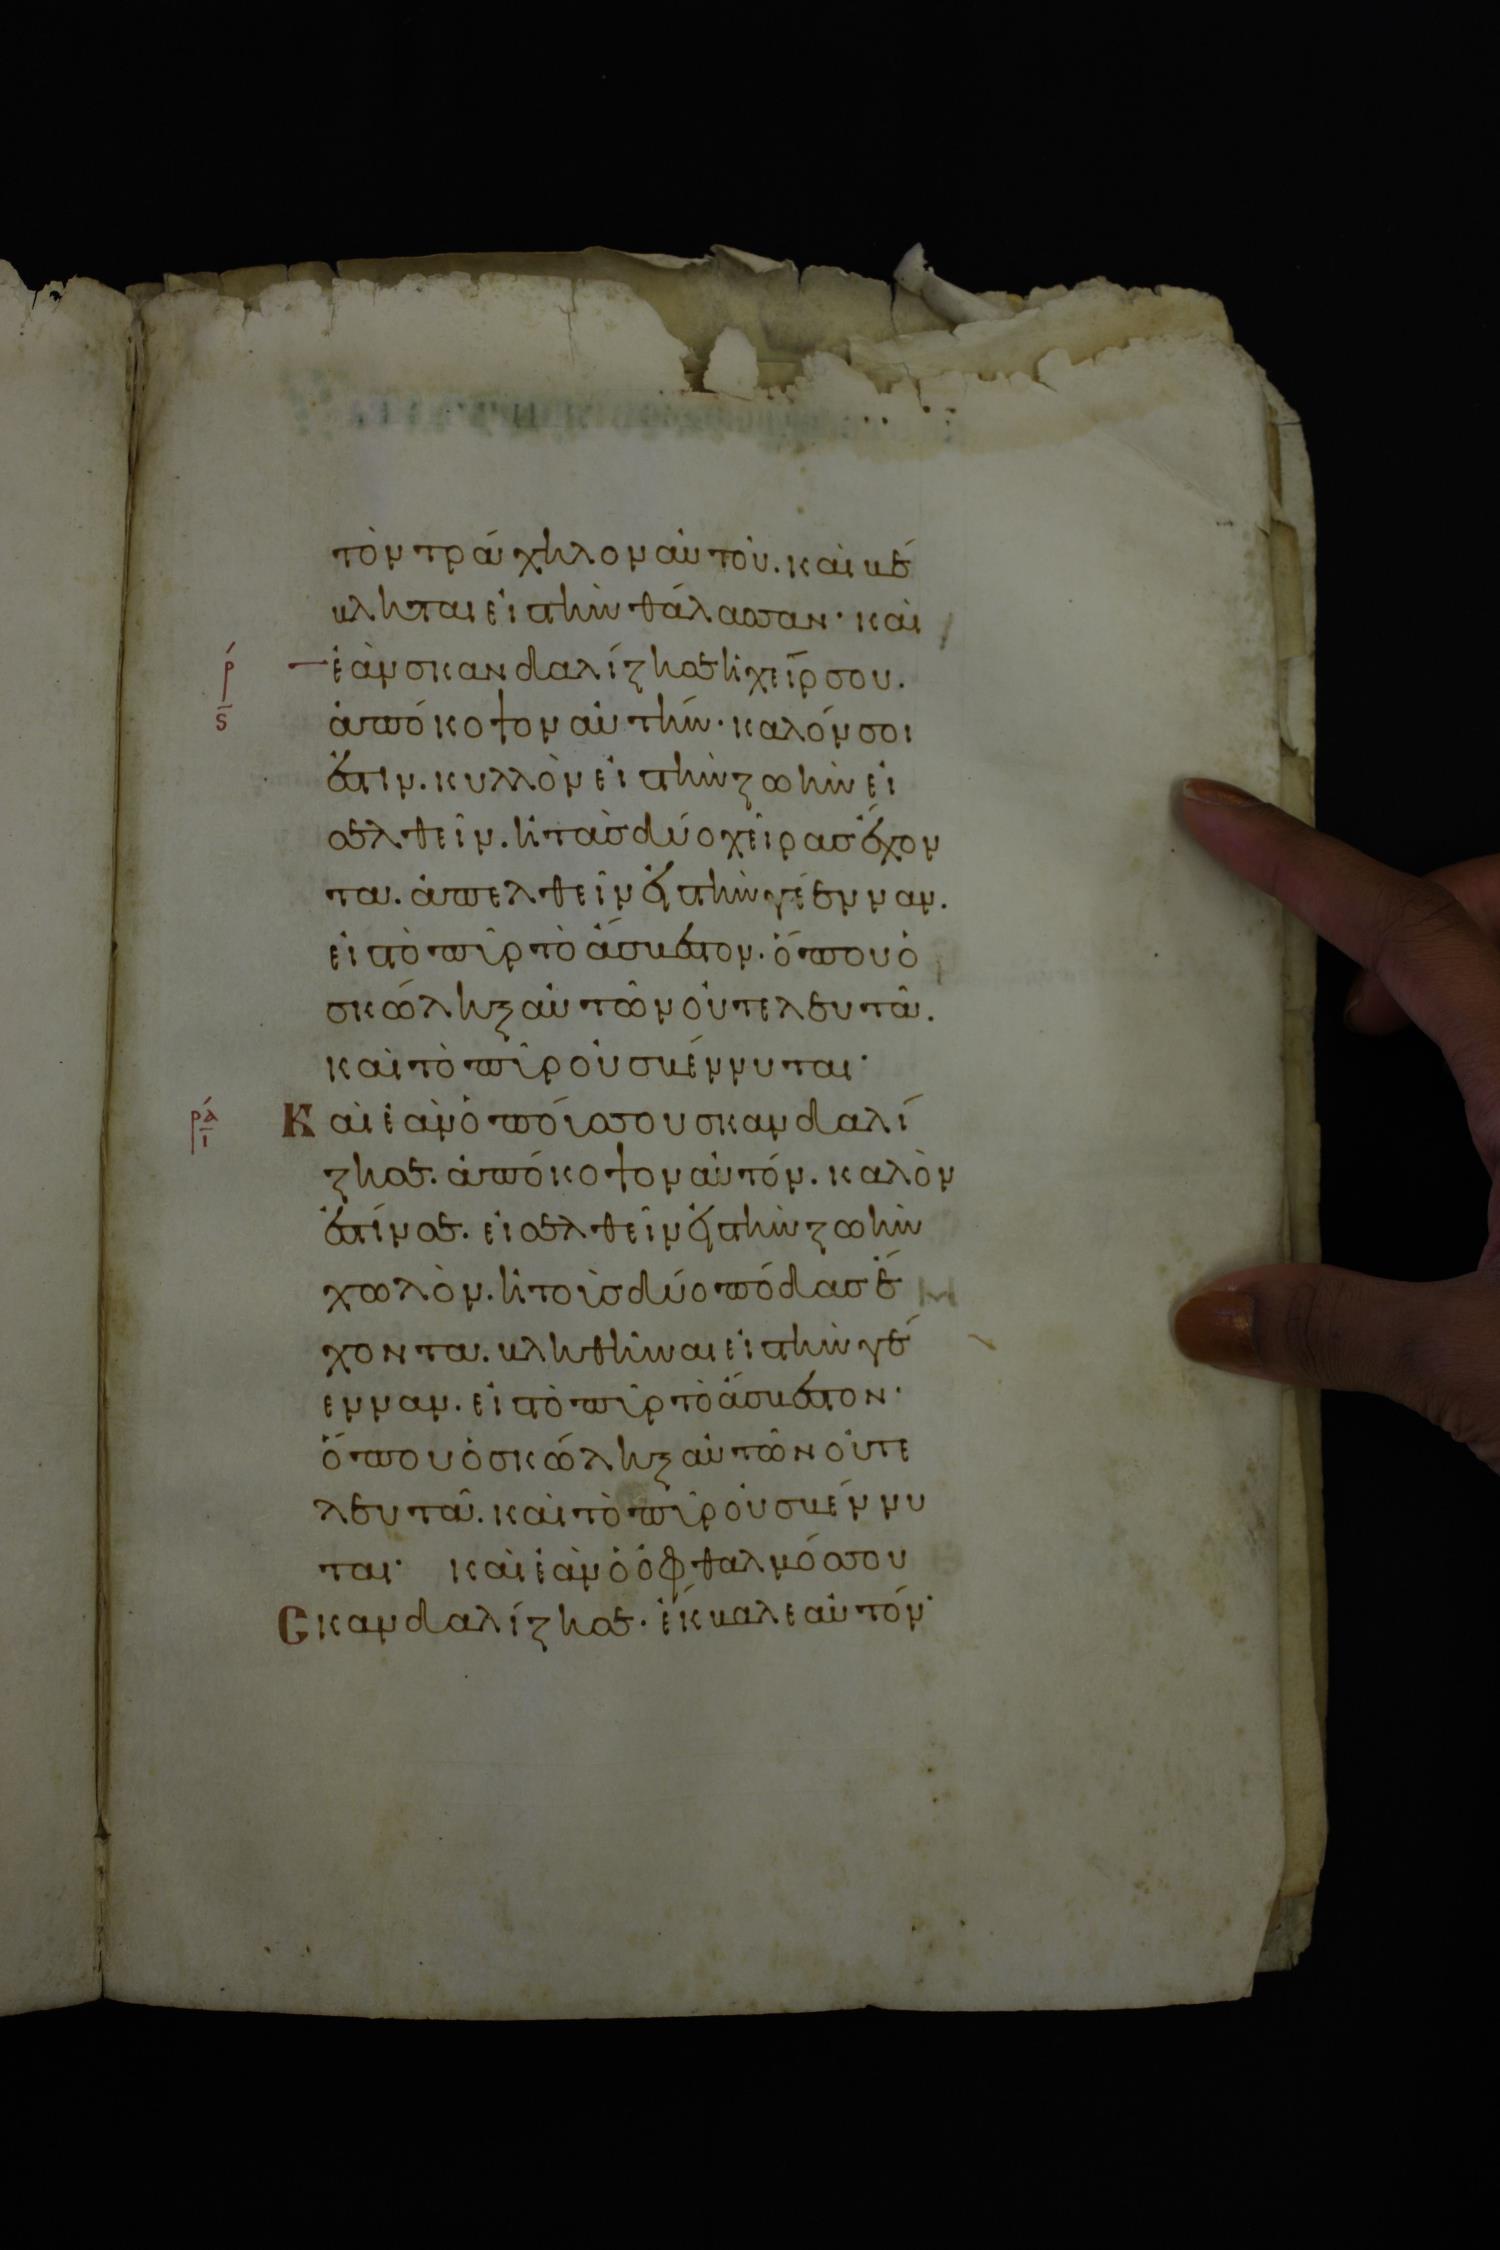 τὸν τράχηλον αὐτοῦ. καὶ βέ
βληται εἰς τὴν θάλασσαν· καὶ
ρ ἐὰν σκανδαλίζησει ἡ χεῖρ σου.
ς ἀπόκοψον αὐτήν· καλόν σοι
ἐστιν. κυλλὸν εἰς τὴν ζωὴν εἰ
σελθεῖν. ἢ τὰς δύο χεῖρας ἔχον
τα. ἀπελθεῖν εἰς τὴν γέενναν.
εἰς τὸ πῦρ τὸ ἄσβεστον. ὅπου ὁ
σκώληξ αὐτῶν οὐ τελευτᾶ.
καὶ τὸ πῦρ οὐ σβέννυται·
ρα ι Καὶ ἐὰν ὁ πόυς σου σκανδαλί
ζησε. ἀπόκοψον αὐτόν. καλὸν
ἐστίν σε. εἰσελθεῖν εἰς τὴν ζωὴν
χωλὸν. ἢ τοὺς δύο πόδας ἔ
χοντα. βληθῆναι εἰς τὴν γέ
ενναν. εἰς τὸ πῦρ τὸ ἄσβεστον·
ὅπου ὁ σκώληξ αὐτῶν οὐ τε
λευτᾶ. καὶ τὸ πῦρ οὐ σβέννυ
ται· καὶ ἐὰν ὁ ὀφθαλμός σου
Σκανδαλίζησε. ἔκβαλε αὐτόν·